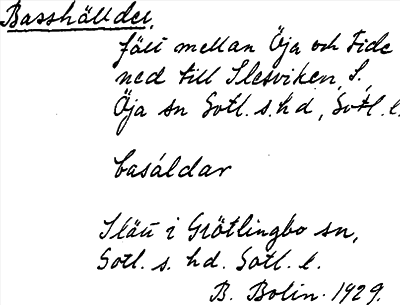 Basshälldei,
fält mellan Öja och Fide
ned till Slesviken, S.
Öja sn Gotl. s. hd, Gotl. l.
basáldar
Slätt i Grötlingbo sn,
Gotl. s. hd. Gotl. l.
B. Bolin. 1929.